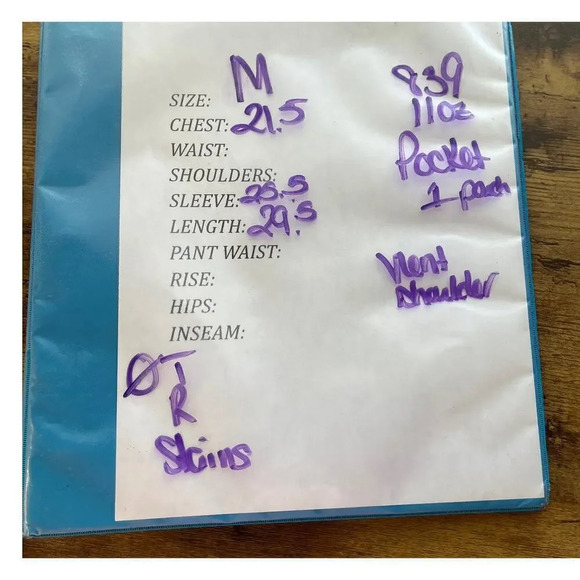 SIZE: M
CHEST: 21.5
WAIST:
SHOULDERS:
SLEEVE: 25.5
LENGTH: 29.5
PANT WAIST:
RISE:
HIPS:
INSEAM:
R
Stains
839
11oz
Pocket
1
Vent
shoulder